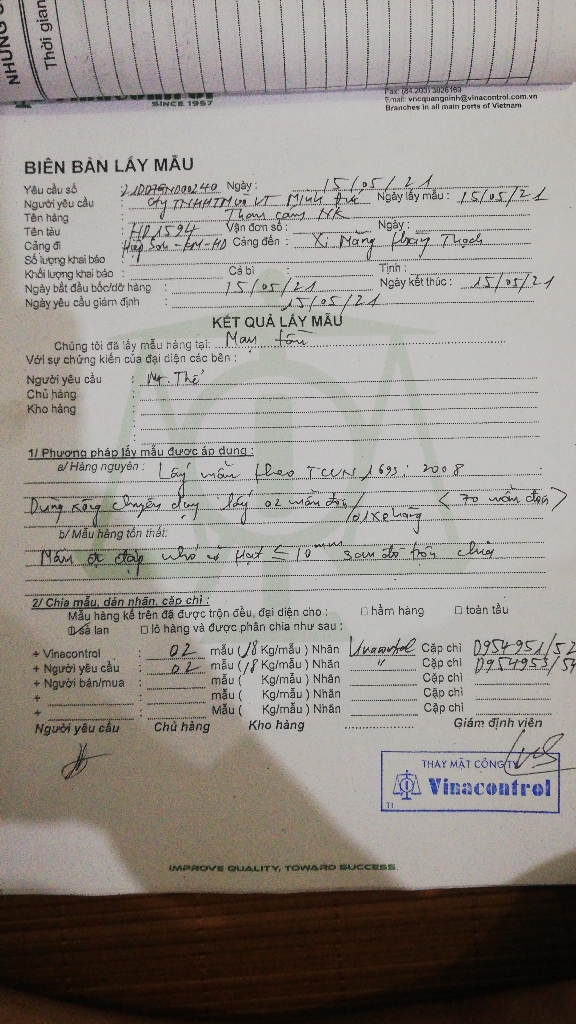 NHỮNG
Thời gian
SINCE 1957
Fax: (84.203) 3826169
Email: vncquangninh@vinacontrol.com.vn
Branches in all main ports of Vietnam
BIÊN BẢN LẤY MẪU
Yêu cầu số : 21D07GN000240 Ngày : 15/05/21
Người yêu cầu : Cty TNHHTM và VT Minh Đức Ngày lấy mẫu : 15/05/21
Tên hàng : Than cám NK
Tên tàu : HD1594 Vận đơn số : Ngày :
Cảng đi : - KM-HD Cảng đến : Xi Măng Thạch
Số lượng khai báo :
Khối lượng khai báo : Cả bì : Tịnh :
Ngày bắt đầu bốc/dỡ hàng : 15/05/21 Ngày kết thúc : 15/05/21
Ngày yêu cầu giám định : 15/05/21
KẾT QUẢ LẤY MẪU
Chúng tôi đã lấy mẫu hàng tại: Mạn tàu
Với sự chứng kiến của đại diện các bên :
Người yêu cầu : Mr. Thế
Chủ hàng :
Kho hàng :
1/ Phương pháp lấy mẫu được áp dụng :
a/ Hàng nguyên : Lấy mẫu theo TCVN 1693: 2008
Dùng xẻng chuyên dụng lấy 02 mẫu đơn/01 xe hàng <70 mẫu đơn>
b/ Mẫu hàng tổn thất:
Mẫu đập nhỏ cỡ hạt ≤ 10mm sau đó trộn chia
2/ Chia mẫu, dán nhãn, cặp chì :
Mẫu hàng kể trên đã được trộn đều, đại diện cho : □ hầm hàng □ toàn tầu
□ sà lan □ lô hàng và được phân chia như sau :
+ Vinacontrol : 02 mẫu (18 Kg/mẫu ) Nhãn Vinacontrol Cặp chì D954951/52
+ Người yêu cầu : 02 mẫu (18 Kg/mẫu ) Nhãn " Cặp chì D954953/54
+ Người bán/mua : mẫu ( Kg/mẫu ) Nhãn Cặp chì
+ : mẫu ( Kg/mẫu ) Nhãn Cặp chì
+ : Mẫu ( Kg/mẫu ) Nhãn Cặp chì
Người yêu cầu Chủ hàng Kho hàng Giám định viên
THAY MẶT CÔNG TY
Vinacontrol
T1
IMPROVE QUALITY, TOWARD SUCCESS.